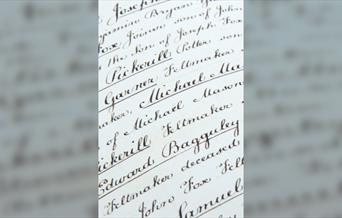 Joseph
jamin Bryan
Fox Joiner son of John
the Son of Joseph Fox
Pickerill Potter son
Garner Feltmaker
Michael Ma
aker,
of Michael Mason
ickerill Feltmaker
Edward Bagguley
Feltmaker deceased
John Fox Felt
Samuel